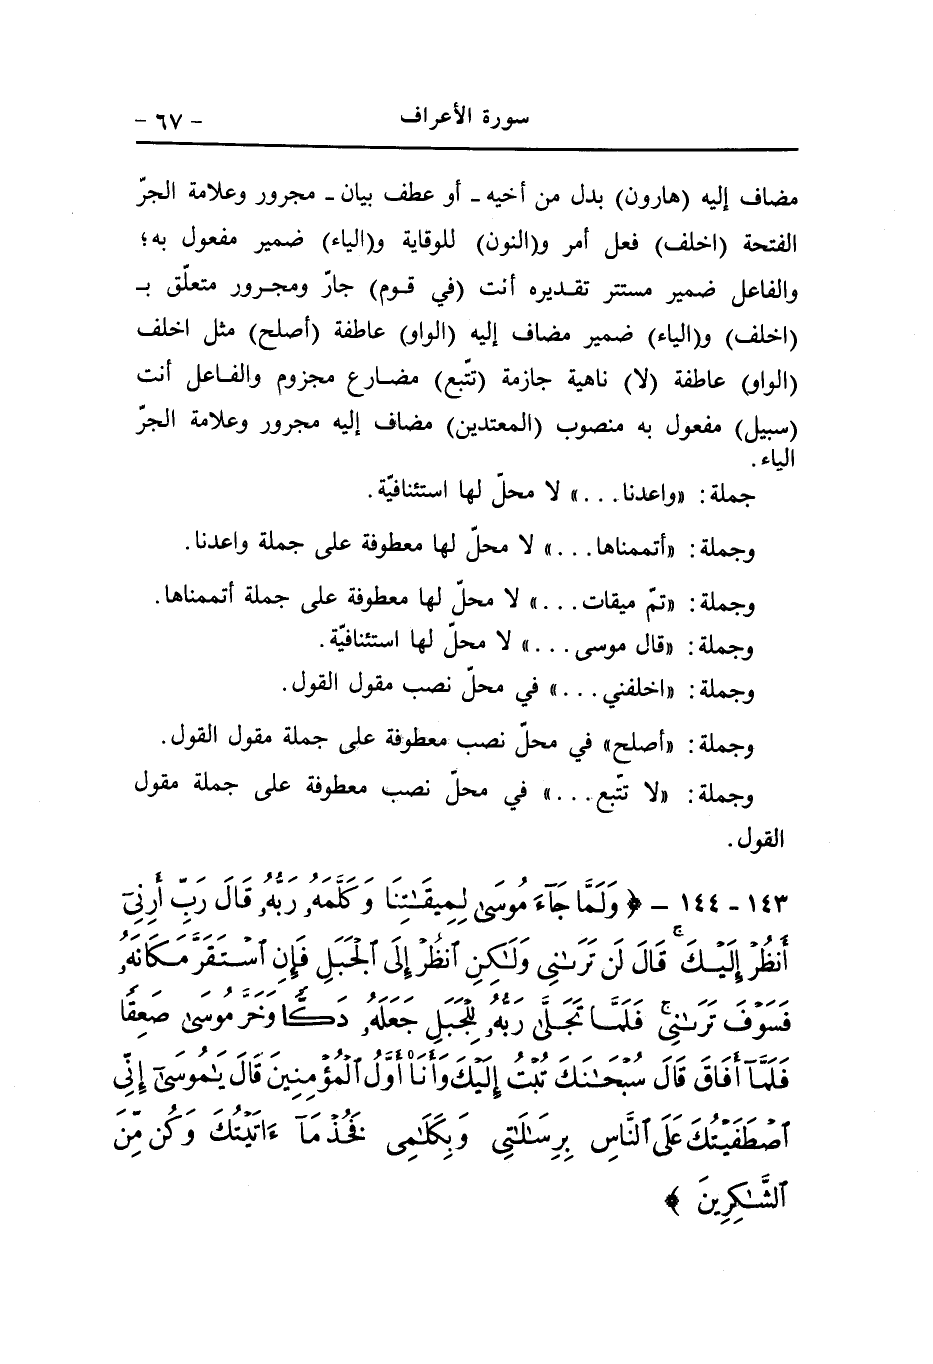 سورة الأعراف - ٦٧ -
مضاف إليه (هارون) بدل من أخيه - أو عطف بيان - مجرور وعلامة الجرّ
الفتحة (اخلف) فعل أمر و(النون) للوقاية و(الياء) ضمير مفعول به؛
والفاعل ضمير مستتر تقديره أنت (في قوم) جارّ ومجرور متعلّق بـ
(اخلف) و(الياء) ضمير مضاف إليه (الواو) عاطفة (أصلح) مثل اخلف
(الواو) عاطفة (لا) ناهية جازمة (تتّبع) مضارع مجزوم والفاعل أنت
(سبيل) مفعول به منصوب (المعتدين) مضاف إليه مجرور وعلامة الجرّ
الياء.
جملة: «واعدنا...» لا محلّ لها استئنافيّة.
وجملة: «أتممناها...» لا محلّ لها معطوفة على جملة واعدنا.
وجملة: «تمّ ميقات...» لا محلّ لها معطوفة على جملة أتممناها.
وجملة: «قال موسى...» لا محلّ لها استئنافيّة.
وجملة: «اخلفني...» في محلّ نصب مقول القول.
وجملة: «أصلح» في محلّ نصب معطوفة على جملة مقول القول.
وجملة: «لا تتّبع...» في محلّ نصب معطوفة على جملة مقول
القول.
١٤٣ - ١٤٤ - ﴿ وَلَمَّا جَآءَ مُوسَىٰ لِمِيقَٰتِنَا وَكَلَّمَهُۥ رَبُّهُۥ قَالَ رَبِّ أَرِنِىٓ
أَنظُرْ إِلَيْكَ ۚ قَالَ لَن تَرَىٰنِى وَلَٰكِنِ ٱنظُرْ إِلَى ٱلْجَبَلِ فَإِنِ ٱسْتَقَرَّ مَكَانَهُۥ
فَسَوْفَ تَرَىٰنِى ۚ فَلَمَّا تَجَلَّىٰ رَبُّهُۥ لِلْجَبَلِ جَعَلَهُۥ دَكًّا وَخَرَّ مُوسَىٰ صَعِقًا
فَلَمَّآ أَفَاقَ قَالَ سُبْحَٰنَكَ تُبْتُ إِلَيْكَ وَأَنَا۠ أَوَّلُ ٱلْمُؤْمِنِينَ قَالَ يَٰمُوسَىٰٓ إِنِّى
ٱصْطَفَيْتُكَ عَلَى ٱلنَّاسِ بِرِسَٰلَٰتِى وَبِكَلَٰمِى فَخُذْ مَآ ءَاتَيْتُكَ وَكُن مِّنَ
ٱلشَّٰكِرِينَ ﴾